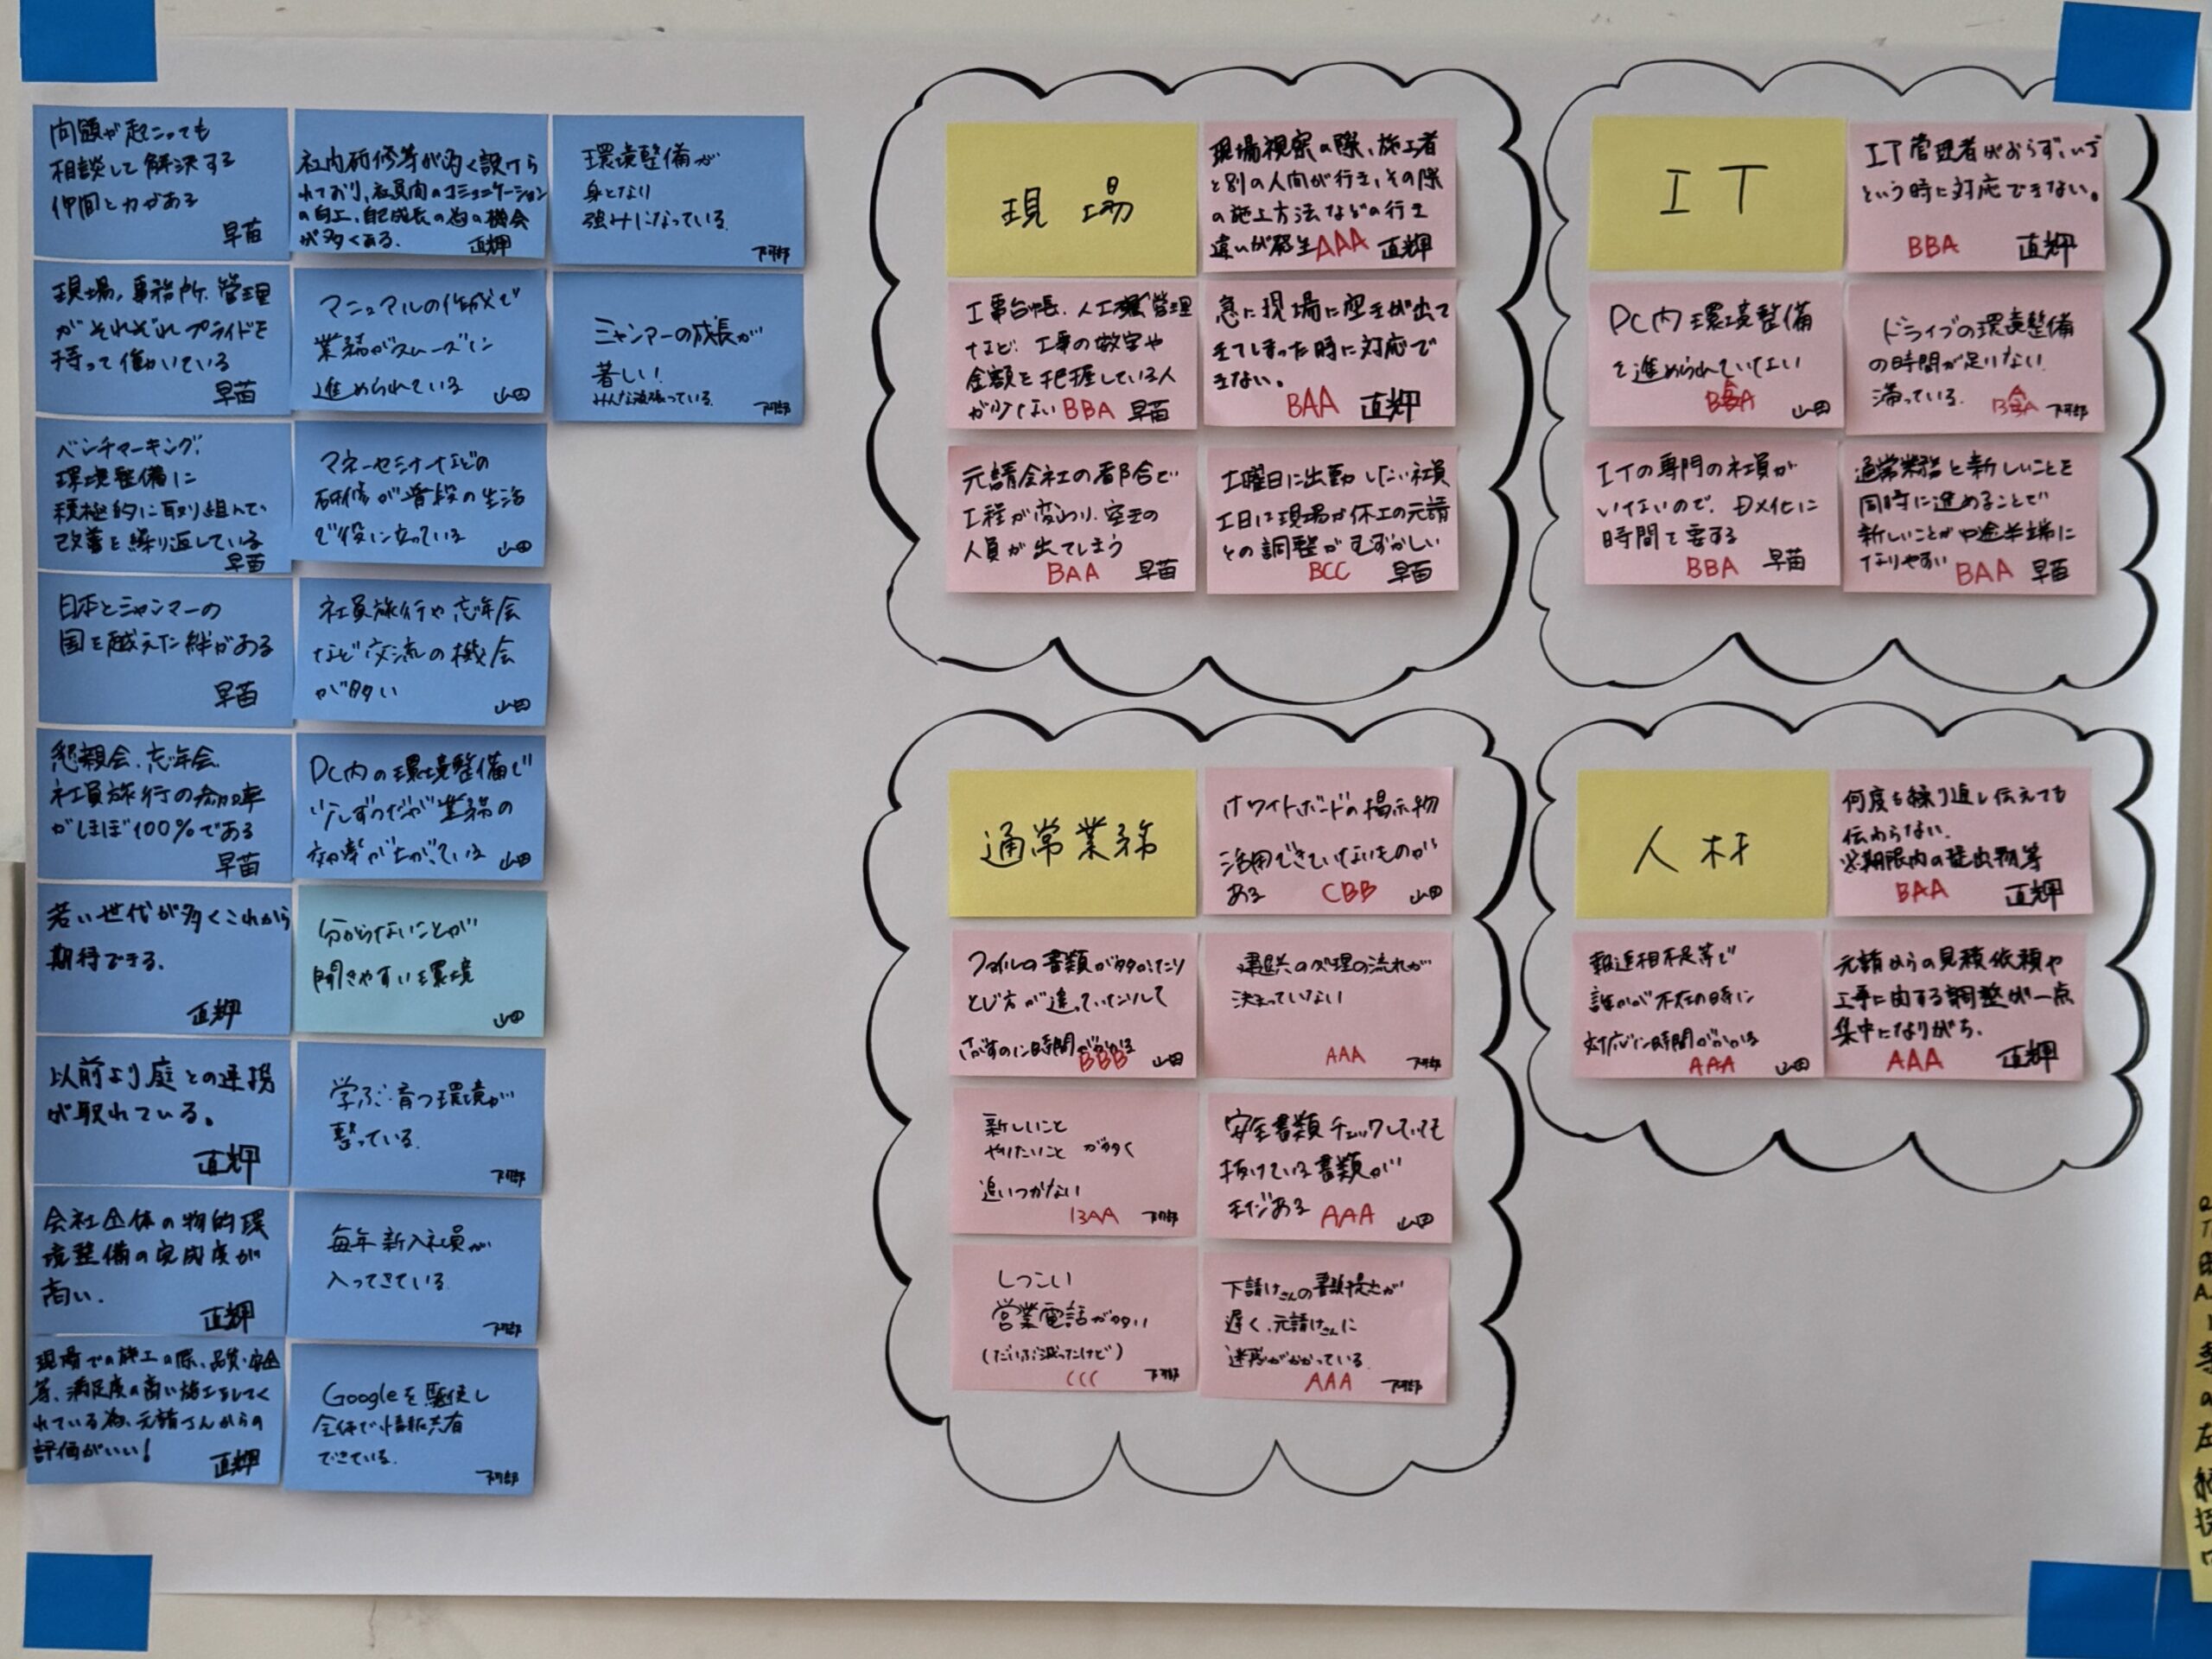 問題が起こっても
相談して解決する
仲間と力がある
早苗
現場、事務所、管理
がそれぞれプライドを
持って働いている
早苗
ベンチマーキング、
環境整備に
積極的に取り組んで、
改善を繰り返している
早苗
日本とミャンマーの
国を越えた絆がある
早苗
懇親会、忘年会、
社員旅行の参加率
がほぼ100%である
早苗
若い世代が多くこれから
期待できる。
直輝
以前より庭との連携
が取れている。
直輝
会社全体の物的環
境整備の完成度が
高い。
直輝
現場での施工の際、品質・安全
等、満足度の高い施工をしてく
れている為、元請さんからの
評価がいい!
直輝
社内研修等が多く設けら
れており、社員間のコミュニケーション
の向上、自己成長の為の機会
が多くある。
直輝
マニュアルの作成で
業務がスムーズに
進められている
山田
マネーセミナーなどの
研修が普段の生活
で役に立っている
山田
社員旅行や忘年会
など交流の機会
が多い
山田
PC内の環境整備で
少しずつだが業務の
効率が上がっている
山田
分からないことが
聞きやすい環境
山田
学ぶ・育つ環境が
整っている。
阿部
毎年新入社員が
入ってきている。
阿部
Googleを駆使し
全体で情報共有
できている。
阿部
環境整備が
身となり
強みになっている。
阿部
ミャンマーの成長が
著しい!
みんな頑張っている。
阿部
現場
現場視察の際、施工者
と別の人間が行き、その際
の施工方法などの行き
違いが発生 AAA 直輝
工事台帳、人工 管理
など、工事の数字や
金額を把握している人
が少ない BBA 早苗
急に現場に空きが出て
きてしまった時に対応で
きない。
BAA 直輝
元請会社の都合で
工程が変わり、空きの
人員が出てしまう
BAA 早苗
土曜日に出勤したい社員
土日は現場が休工の元請
との調整がむずかしい
BCC 早苗
IT
IT管理者がおらず、いざ
という時に対応できない。
BBA 直輝
PC内環境整備
を進められていない
山田
ドライブの環境整備
の時間が足りない
滞っている。
阿部
ITの専門の社員が
いないので、DX化に
時間を要する
BBA 早苗
通常業務と新しいことを
同時に進めることで
新しいことが中途半端に
なりやすい BAA 早苗
通常業務
ホワイトボードの掲示物
活用できていないものが
ある CBB 山田
ファイルの書類が多かったり
とじ方が違っていたりして
さがすのに時間がかかる
BBB 山田
の処理の流れが
決まっていない
AAA 阿部
新しいこと
やりたいこと が多く
追いつかない
BAA 阿部
安全書類チェックしていても
抜けている書類が
まだある AAA 山田
しつこい
営業電話が多い
(だいぶ減ったけど)
CCC 阿部
下請けさんの書類提出が
遅く、元請けさんに
迷惑がかかっている。
AAA 阿部
人材
何度も繰り返し伝えても
伝わらない。
※期限内の提出物等
BAA 直輝
報連相不足等で
誰かが不在の時に
対応に時間がかかる
AAA 山田
元請からの見積依頼や
工事に関する調整が一点
集中になりがち。
AAA 直輝